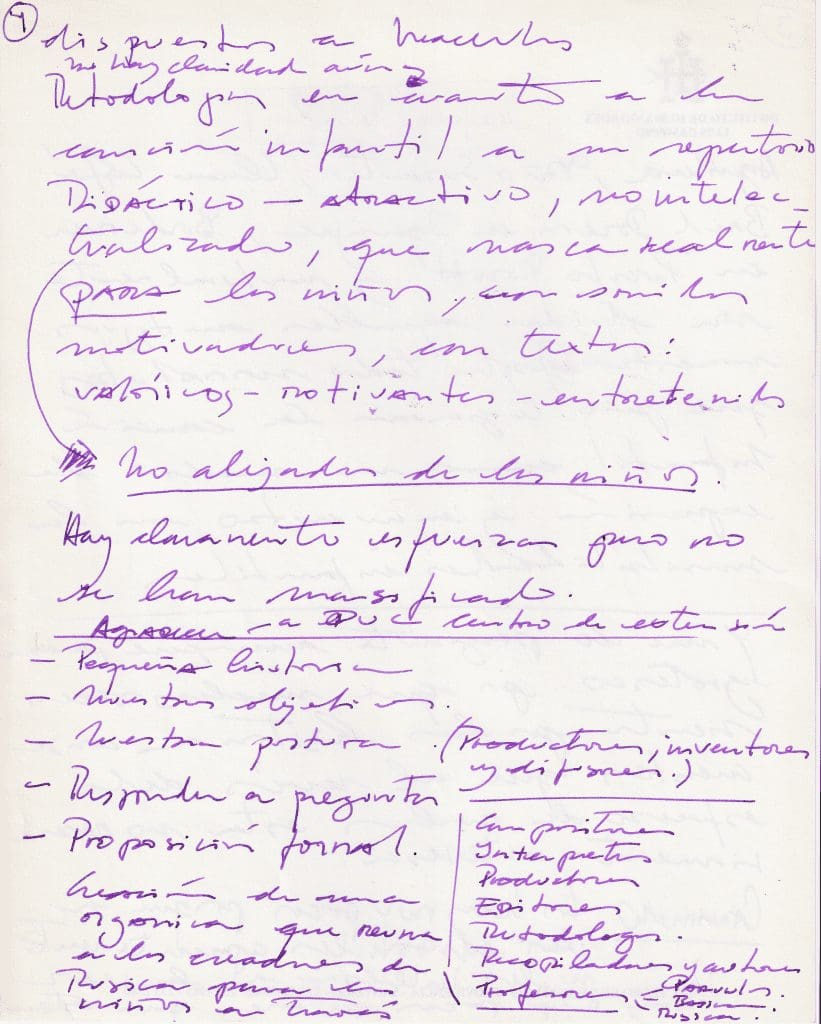 4
dispuestos a hacerlos
no hay claridad aún
Metodologías en cuanto a la
canción infantil a su repertorio
DIDÁCTICO — atractivo, no intelec-
tualizado, que nasca realmente
PARA los niños, con sonidos
motivadores, con textos:
valóricos - motivantes - entretenidos
No alejados de los niños.
Hay claramente esfuerzos pero no
se han masificado.
Agradecer - a PUC centro de extensión
- Pequeña historia
- Nuestros objetivos.
- Nuestra postura. (Productores, inventores
y difusores.)
- Responder a preguntas
- Proposición formal.
Creación de una
orgánica que reuna
a los creadores de
Música para los
niños
Compositores
Interpretes
Productores
Editores
Metodólogos.
Recopiladores y autores
Profesores - Parvulos.
Basica
Musica.